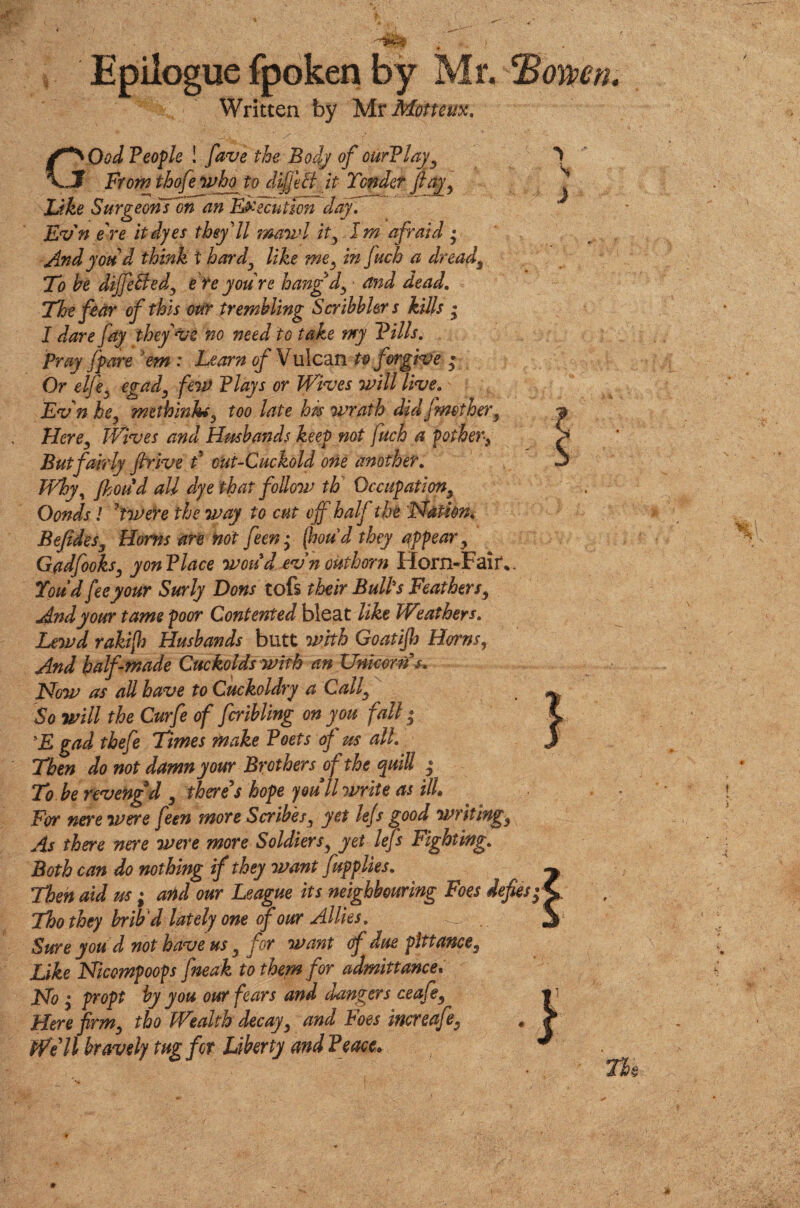 Epilogue ſpoken by Mr. Bowen.
Written by Mr Motteux.
GOod People ! ſave the Body of our Play,
From thoſe who to diſſect it Tender ſtay,
Like Surgeons on an Execution day.
Ev'n e're it dyes they'll mawl it, I m afraid ;
And you'd think t hard, like me, in ſuch a dread,
To be diſſected, e're you're hang'd, and dead.
The fear of this our trembling Scribblers kills ;
I dare ſay they've no need to take my Pills.
Pray ſpare 'em : Learn of Vulcan to forgive ;
Or elſe, egad, few Plays or Wives will live.
Ev'n he, methinks, too late his wrath did ſmother,
Here, Wives and Husbands keep not ſuch a pother,
But fairly ſtrive t' out-Cuckold one another.
Why, ſhou'd all dye that follow th' Occupation,
Oonds ! 'twere the way to cut off half the Nation.
Beſides, Horns are not ſeen ; ſhou'd they appear,
Gadſooks, yon Place wou'd ev'n outhorn Horn-Fair.
You'd ſee your Surly Dons toſs their Bull's Feathers,
And your tame poor Contented bleat like Weathers.
Lewd rakiſh Husbands butt with Goatiſh Horns,
And half-made Cuckolds with an Unicorn's.
Now as all have to Cuckoldry a Call,
So will the Curſe of ſcribling on you fall ;
'E gad theſe Times make Poets of us all.
Then do not damn your Brothers of the quill ;
To be reveng'd , there's hope you'll write as ill.
For nere were ſeen more Scribes, yet leſs good writing,
As there nere were more Soldiers, yet leſs Fighting.
Both can do nothing if they want ſupplies.
Then aid us ; and our League its neighbouring Foes defies ;
Tho they brib'd lately one of our Allies.
Sure you'd not have us , for want of due pittance,
Like Nicompoops ſneak to them for admittance.
No ; propt by you our fears and dangers ceaſe,
Here firm, tho Wealth decay, and Foes increaſe,
We'll bravely tug for Liberty and Peace.
The